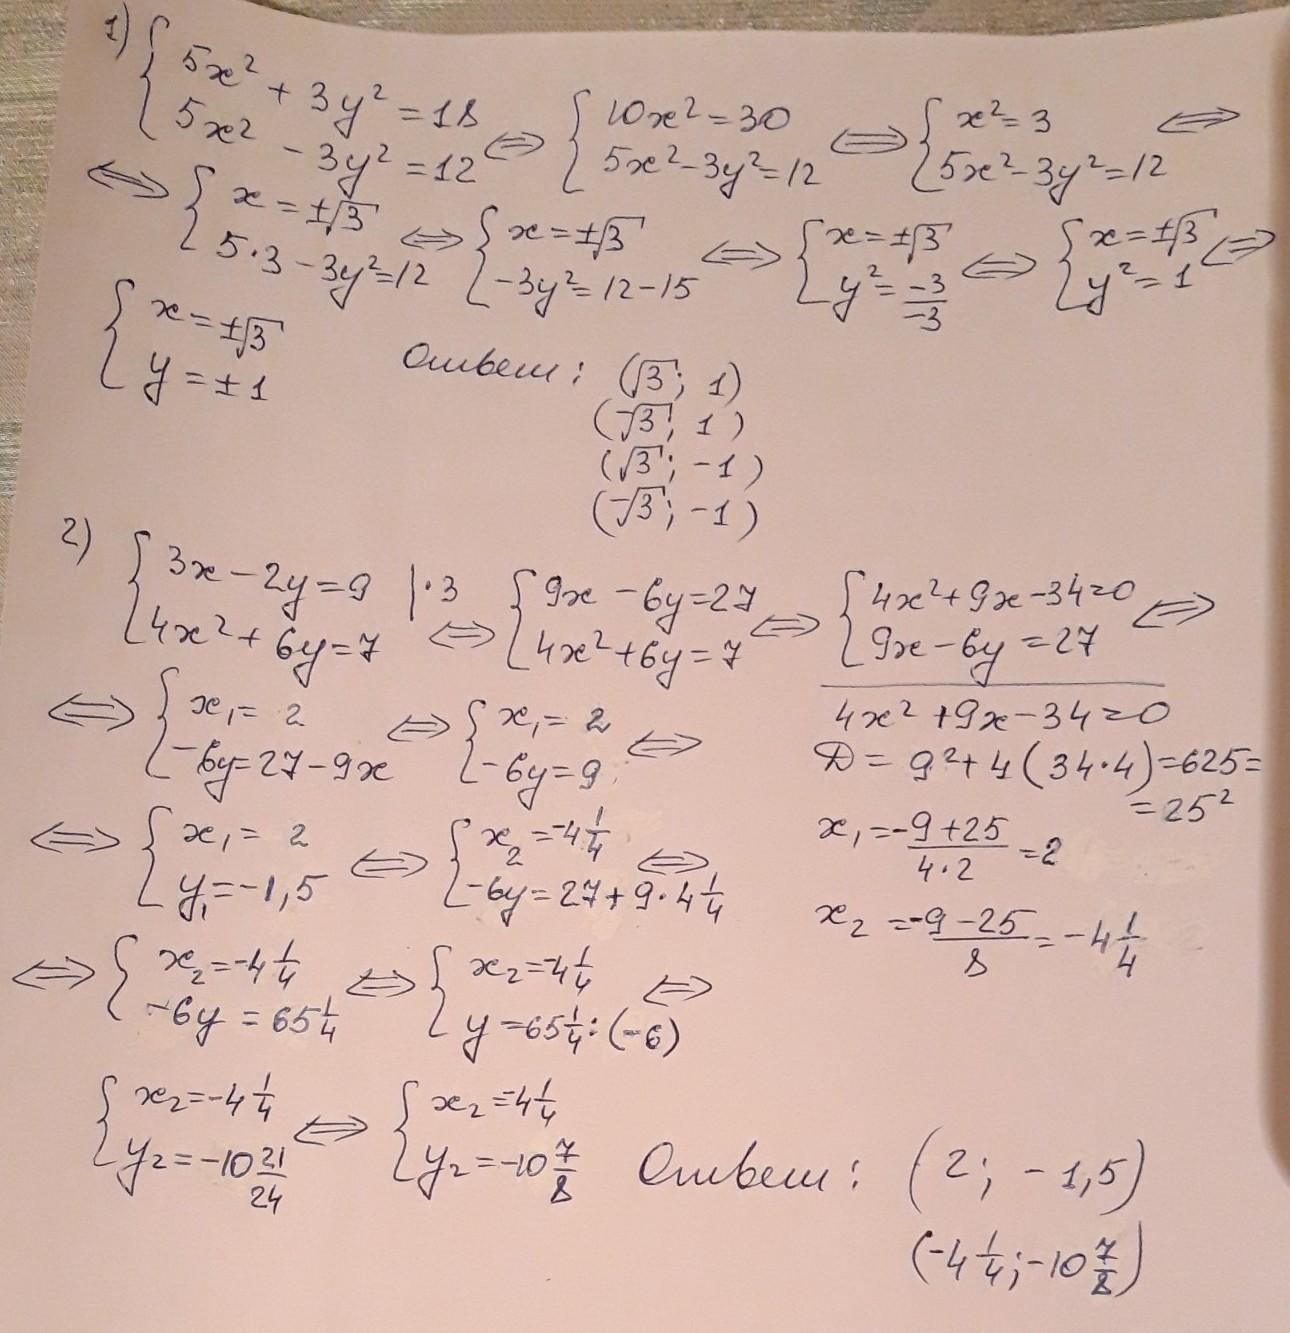 1) { 5x² + 3y² = 18
5x² - 3y² = 12 ⇔ { 10x² = 30
5x² - 3y² = 12 ⇔ { x² = 3
5x² - 3y² = 12 ⇔
⇔ { x = ±√3
5·3 - 3y² = 12 ⇔ { x = ±√3
-3y² = 12 - 15 ⇔ { x = ±√3
y² = -3/-3 ⇔ { x = ±√3
y² = 1 ⇔
{ x = ±√3
y = ±1
Ответ: (√3; 1)
(-√3; 1)
(√3; -1)
(-√3; -1)
2) { 3x - 2y = 9 |·3
4x² + 6y = 7 ⇔ { 9x - 6y = 27
4x² + 6y = 7 ⇔ { 4x² + 9x - 34 = 0
9x - 6y = 27 ⇔
4x² + 9x - 34 = 0
D = 9² + 4(34·4) = 625 =
= 25²
x₁ = -9 + 25/4·2 = 2
x₂ = -9 - 25/8 = -4 1/4
⇔ { x₁ = 2
-6y = 27 - 9x ⇔ { x₁ = 2
-6y = 9 ⇔
⇔ { x₁ = 2
y₁ = -1,5 ⇔ { x₂ = -4 1/4
-6y = 27 + 9·4 1/4 ⇔
⇔ { x₂ = -4 1/4
-6y = 65 1/4 ⇔ { x₂ = -4 1/4
y = 65 1/4 : (-6) ⇔
{ x₂ = -4 1/4
y₂ = -10 21/24 ⇔ { x₂ = -4 1/4
y₂ = -10 7/8
Ответ: (2; -1,5)
(-4 1/4; -10 7/8)